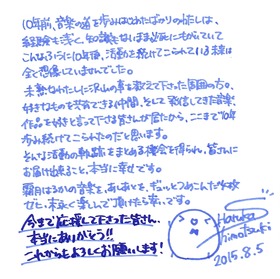 10年前、音楽の道を歩みはじめたばかりのわたしは、
経験も浅く、知識もないまま必死にもがいていて
こんなふうに10年後、活動を続けてこられている未来は
全く想像していませんでした。
未熟なわたしに沢山の事を教えて下さった周囲の方。
好きなものを共有できる仲間、そして発信してきた音楽、
作品を好きと言って下さる皆さんが居たから、ここまで10年
歩み続けてこられたのだと思います。
そんな活動の軌跡をまとめる機会を得られ、皆さんに
お届け出来ること、本当に幸せです。
霜月はるかの音楽、あしあとを、ぎゅっとつめこんだ
ぜひ、末永く楽しんで頂けたら幸いです。
今まで応援して下さった皆さん、
本当にありがとう!!
これからもよろしくお願いします!
Haruka
Shimotsuki
2015.8.5